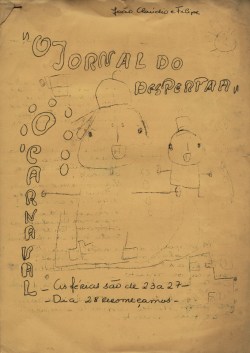 João Claudio e Filipe
"O JORNAL DO
DESPERTAR"
O CARNAVAL
- As férias são de 23 a 27 -
- Dia 28 recomeçamos -